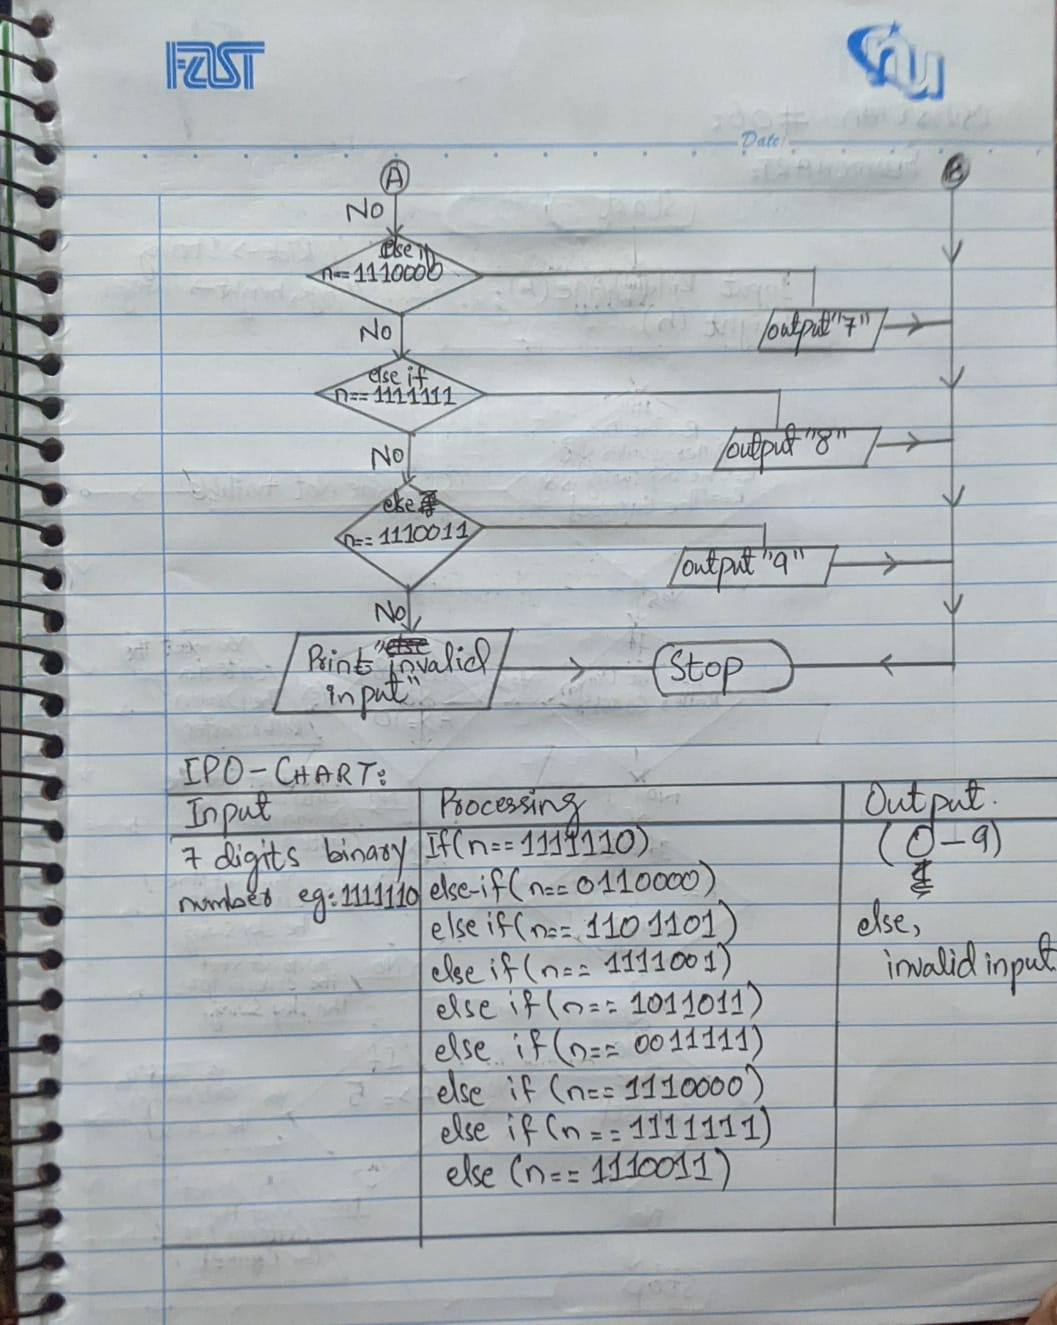 FAST
nu
Date:
A
B
No
else if
n==1110000
output "7"
No
else if
n==1111111
output "8"
No
else
n==1110011
output "9"
No
Print "invalid
input"
Stop
IPO-CHART:
Input
Processing
Output.
7 digits binary
number eg:1111110
If(n==1111110)
else-if(n==0110000)
else if(n==1101101)
else if(n==1111001)
else if(n==1011011)
else if(n==0011111)
else if(n==1110000)
else if(n==1111111)
else (n==1110011)
(0-9)
else,
invalid input